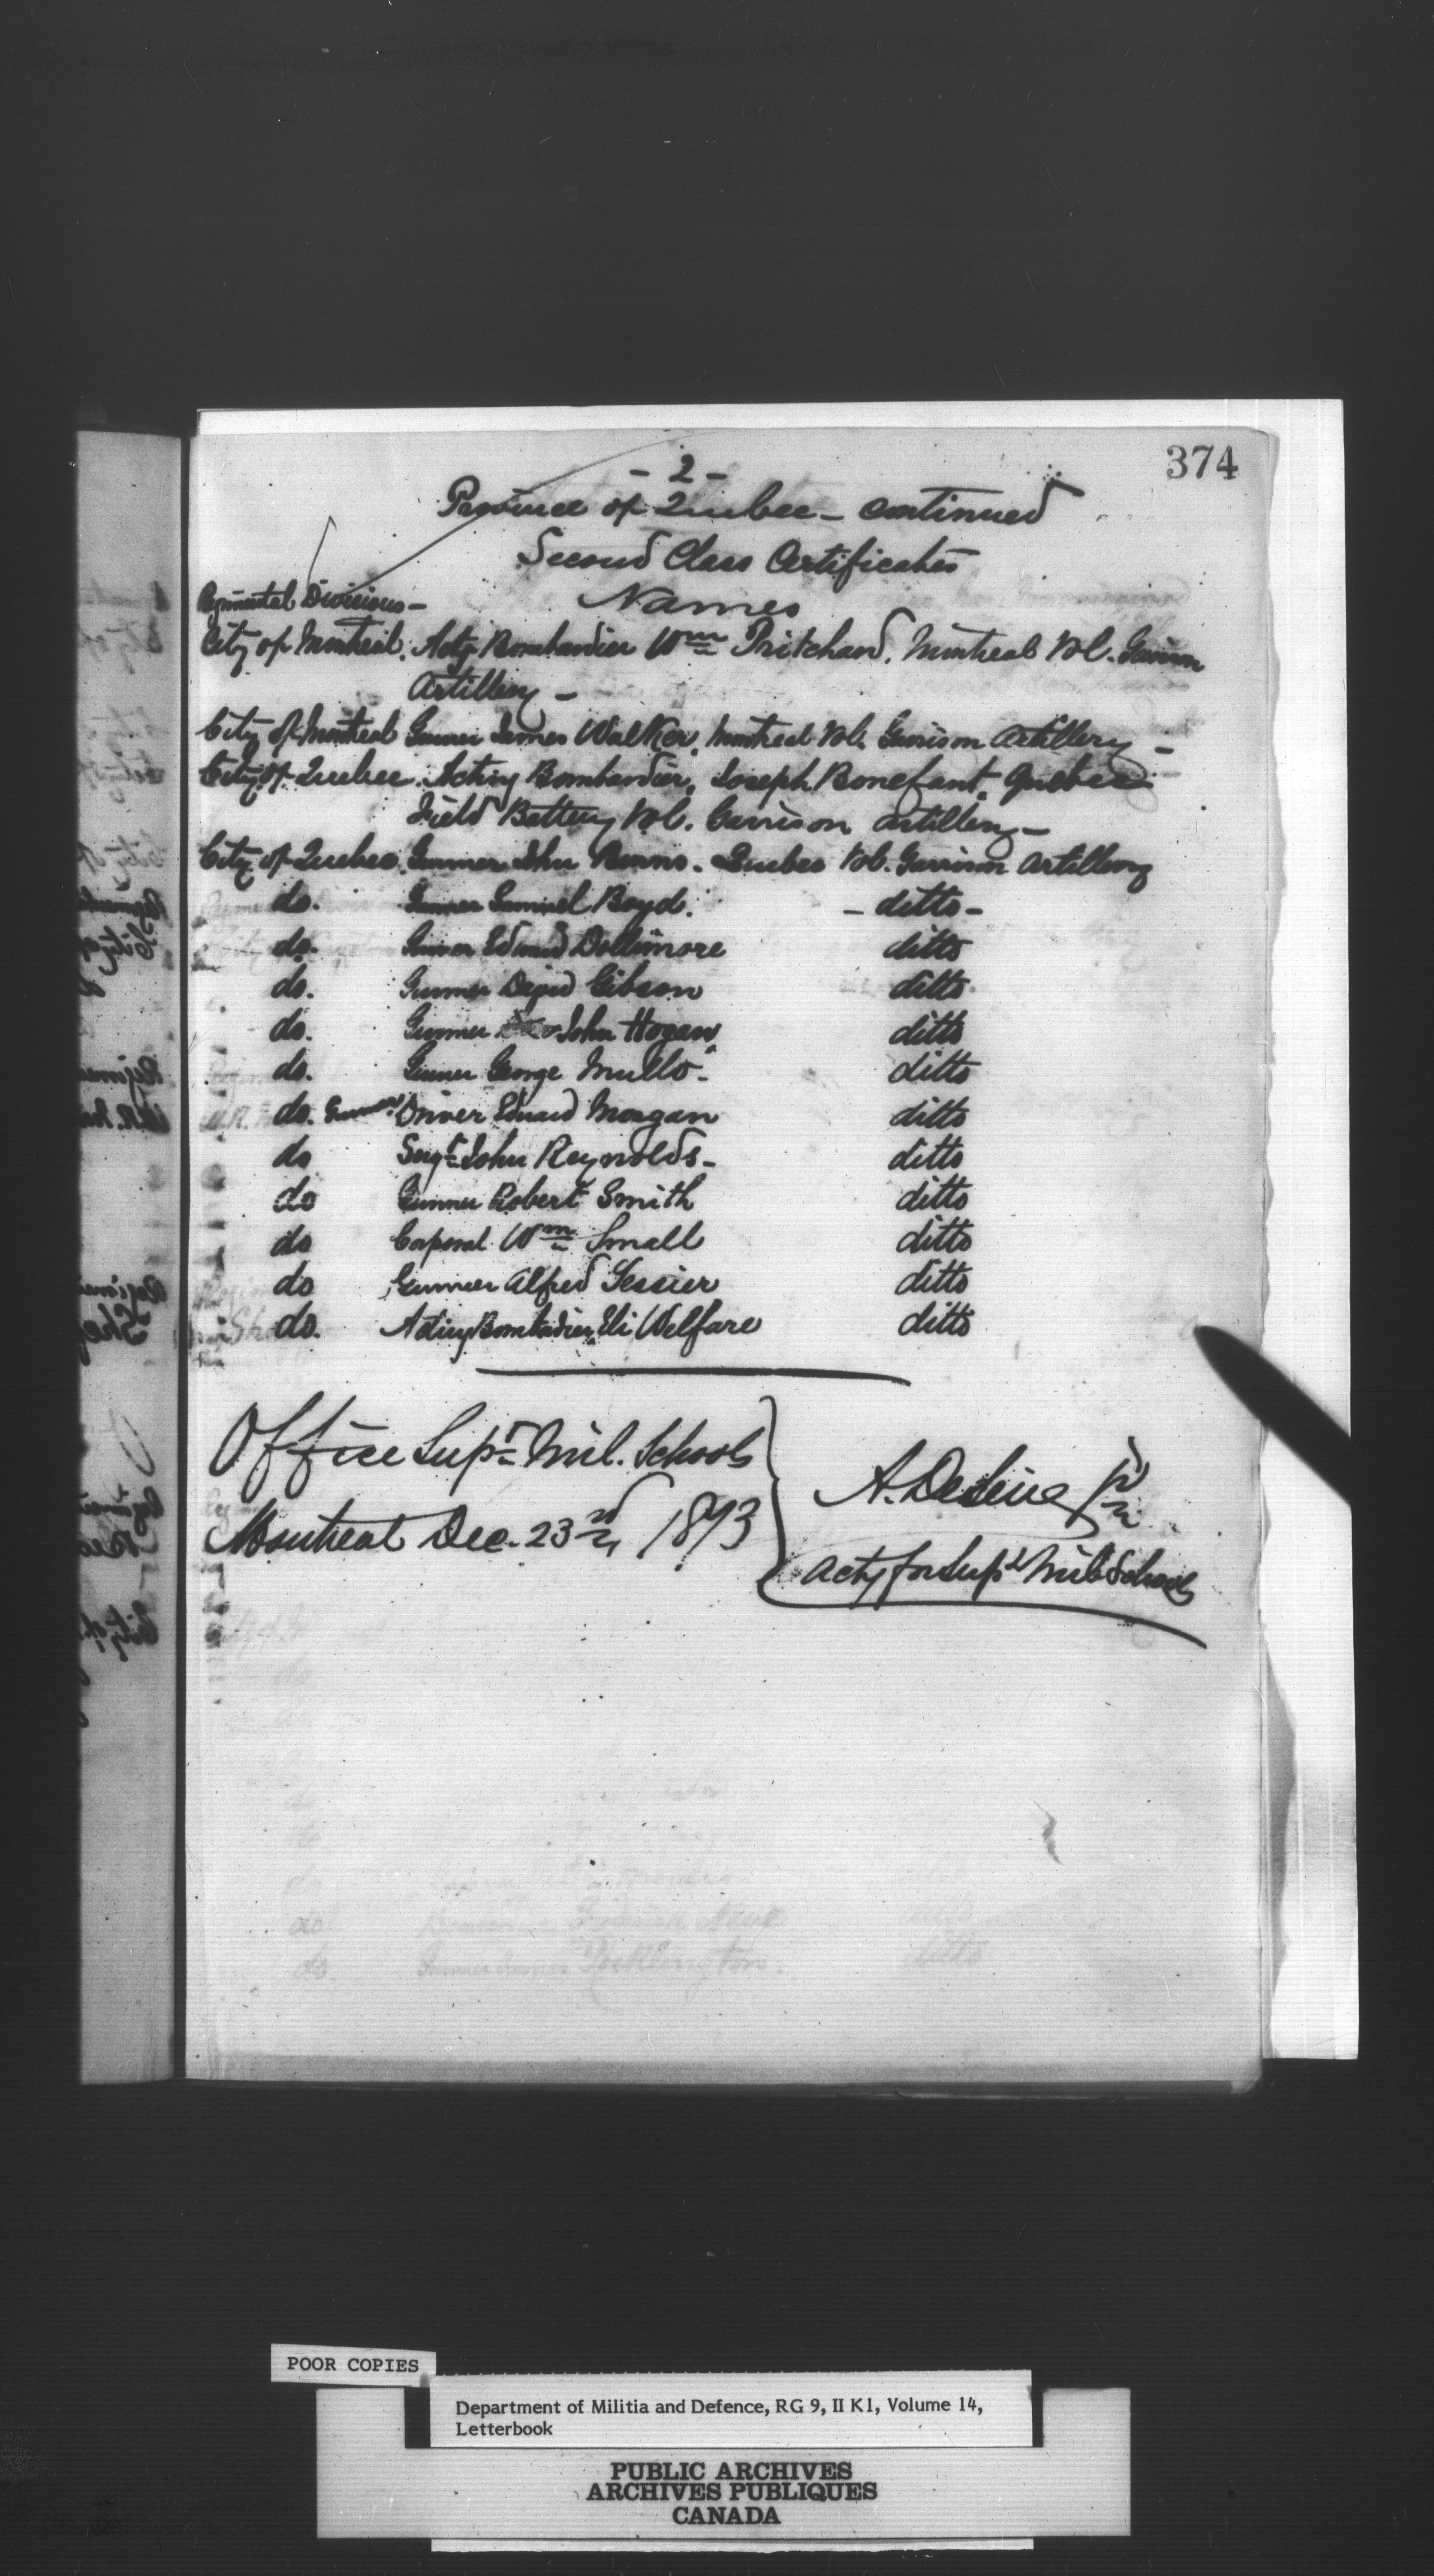 374
- 2 -
Province of Quebec - continued
Second Class Certificates
Regimental Divisions - Names
City of Montreal. Actg Bombardier Wm Pritchard. Montreal Vol. Garrison
Artillery -
City of Montreal Gunner James Walker, Montreal Vol. Garrison Artillery -
City of Quebec. Acting Bombardier, Joseph Bonefant, Quebec
Field Battery Vol. Garrison Artillery -
City of Quebec. Gunner John Burns. Quebec Vol. Garrison Artillery
do. Gunner Samuel Boyd. - ditto -
do. Gunner Edward Dollimore ditto
do. Gunner David Gibson ditto
do. Gunner John Hogan ditto
do. Gunner George Mullo - ditto
do. Gunner Driver Edward Morgan ditto
do Sergt John Reynolds - ditto
do Gunner Robert Smith ditto
do Corporal Wm Small ditto
do Gunner Alfred Tessier ditto
do. Acting Bombardier Eli Welfare ditto
Office Supt Mil. Schools
Montreal Dec. 23rd 1873
A.
Actg for Supt Mil Schools
POOR COPIES
Department of Militia and Defence, RG 9, II K1, Volume 14,
Letterbook
PUBLIC ARCHIVES
ARCHIVES PUBLIQUES
CANADA